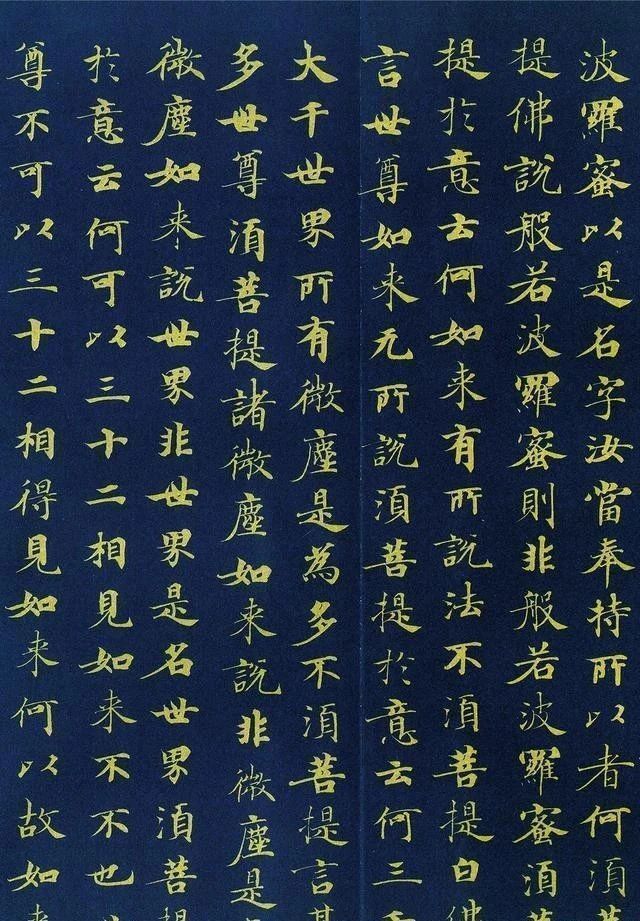 波羅蜜以是名字汝當奉持所以者何湏菩
提佛說般若波羅蜜則非般若波羅蜜湏菩
提於意云何如来有所說法不湏菩提白佛
言世尊如来无所說湏菩提於意云何三千
大千世界所有微塵是為多不湏菩提言甚
多世尊湏菩提諸微塵如来說非微塵是
微塵如来說世界非世界是名世界湏菩提
於意云何可以三十二相見如来不不也
尊不可以三十二相得見如来何以故如来